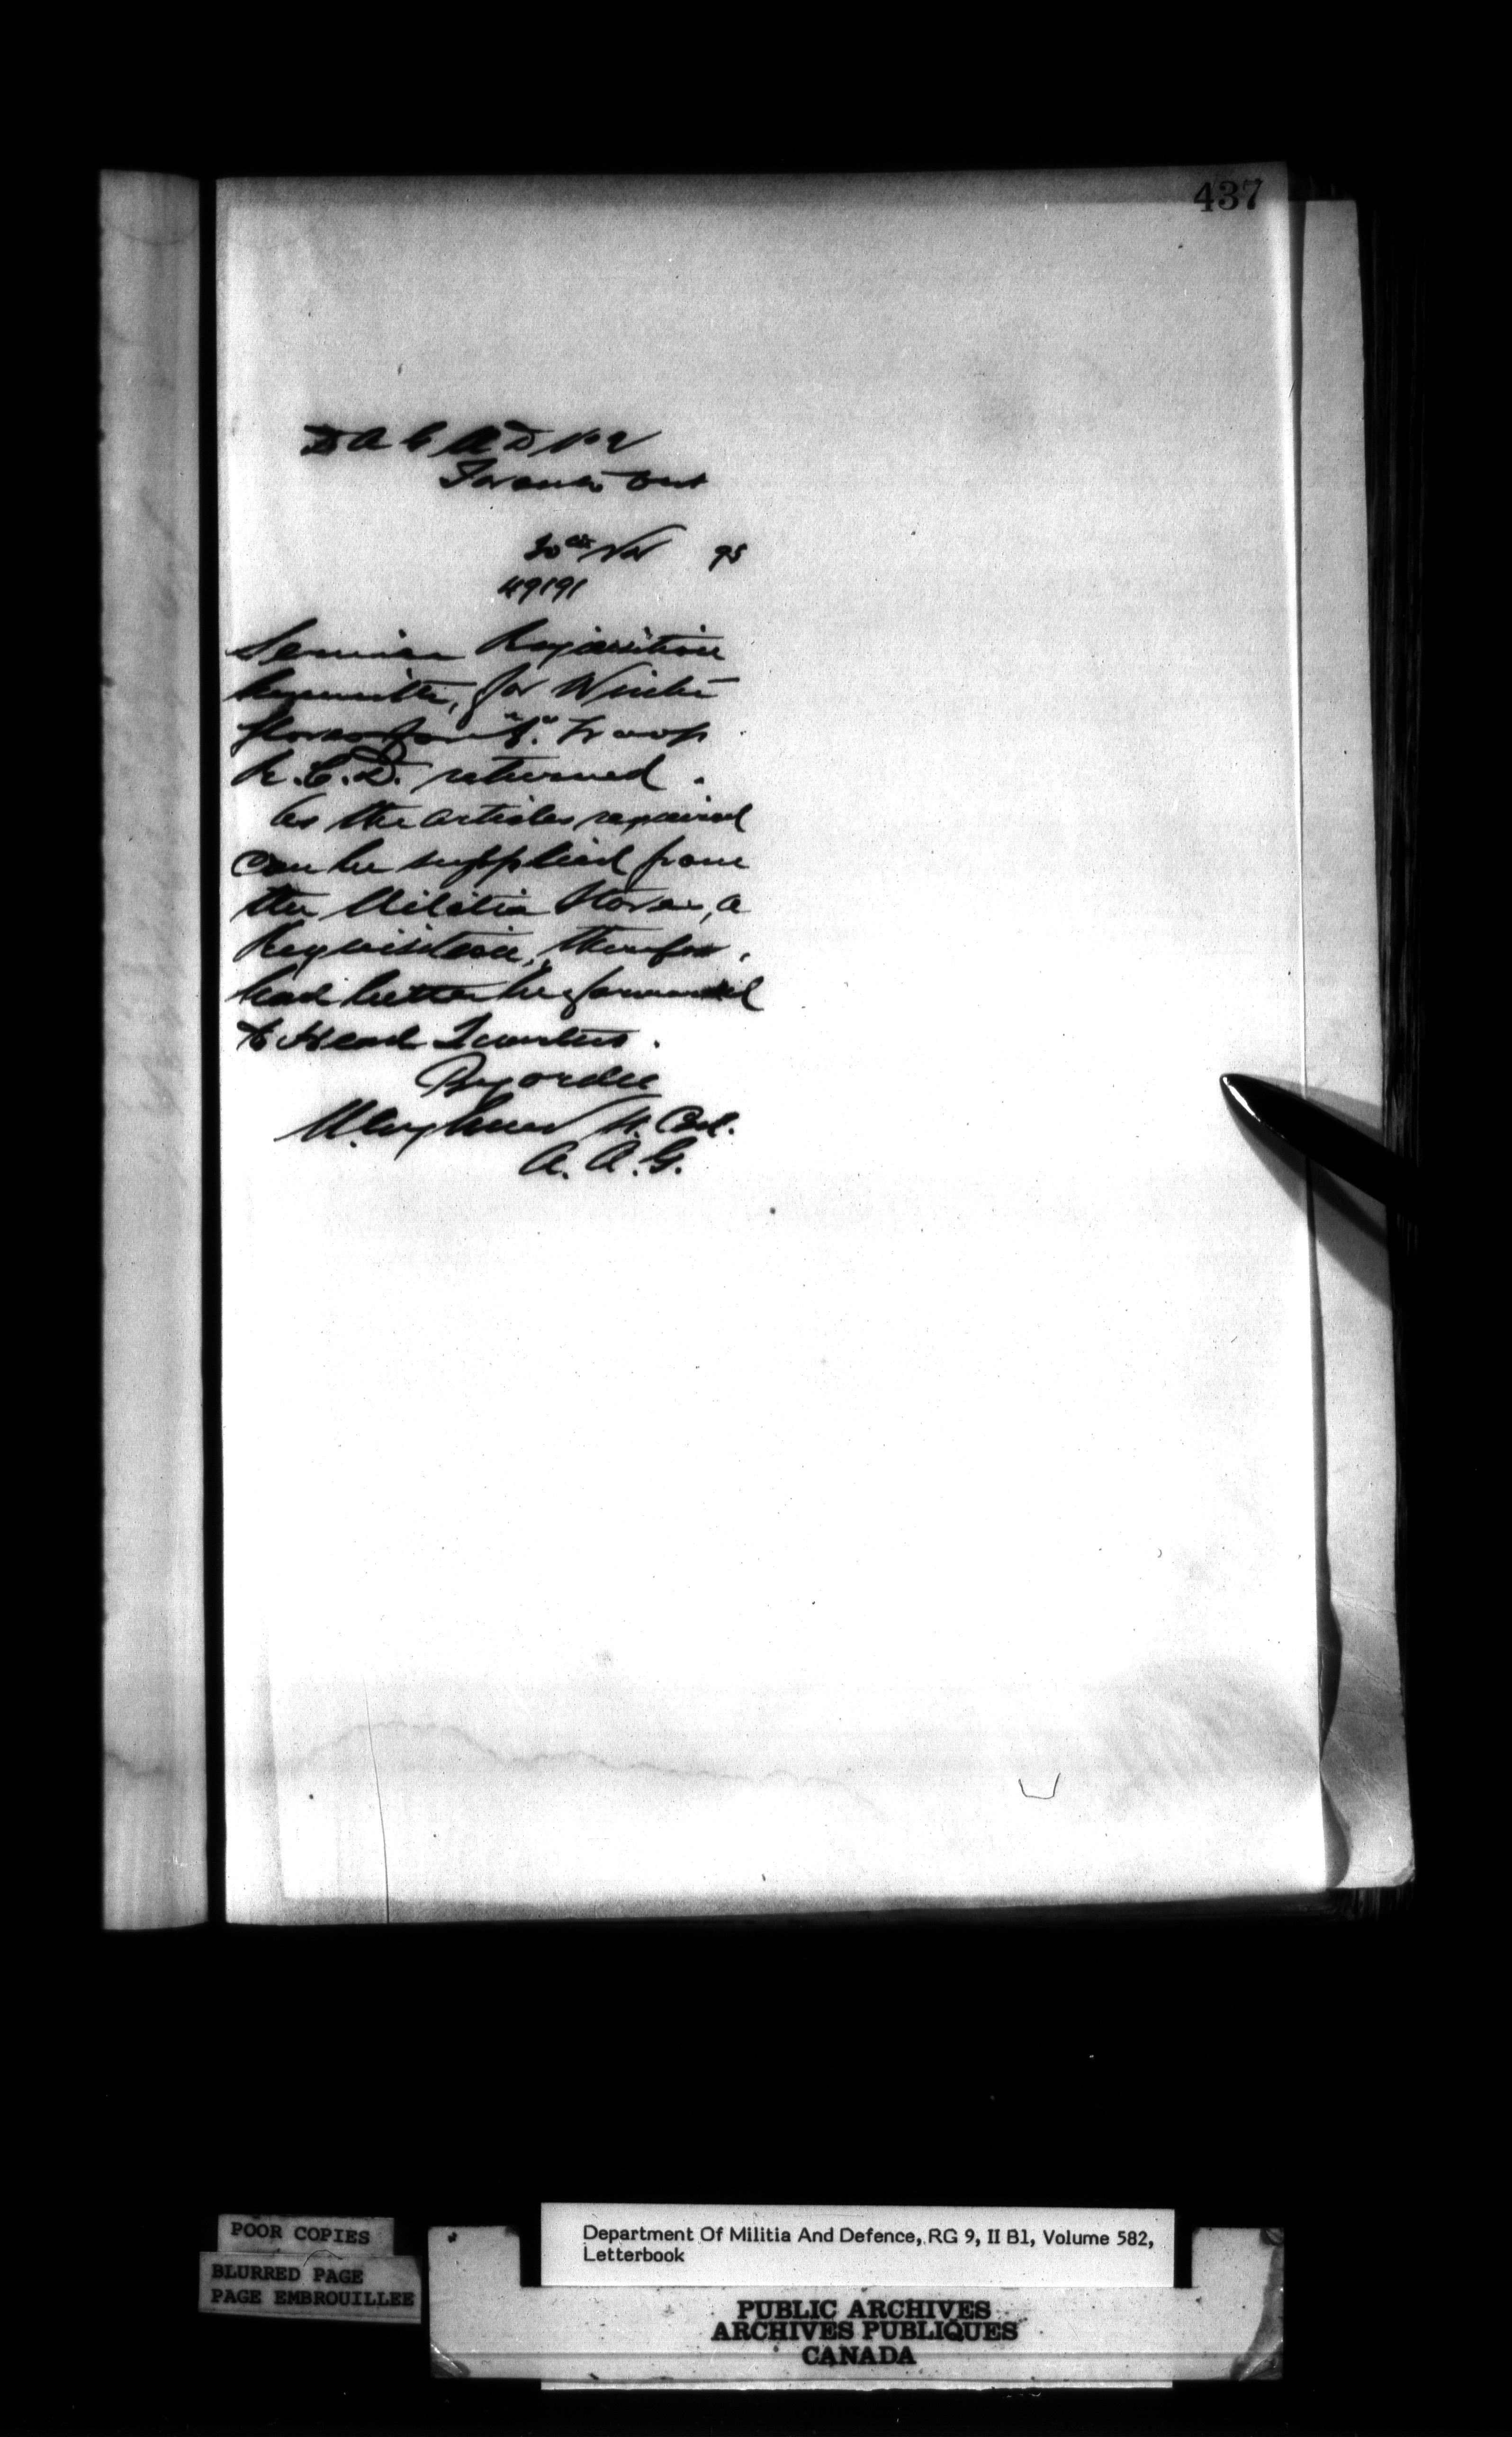 437
D A G M D No 2
Toronto Ont
30th Nov 95
49191
Service Requisition
herewith, for Winter
Troop
R.C.D. returned.
As the articles required
can be supplied from
the Militia Stores, a
Requisition, therefor,
had better be forwarded
to Head Quarters.
By order
Lt. Col.
A. A. G.
POOR COPIES
BLURRED PAGE
PAGE EMBROUILLEE
Department Of Militia And Defence, RG 9, II B1, Volume 582,
Letterbook
PUBLIC ARCHIVES
ARCHIVES PUBLIQUES
CANADA